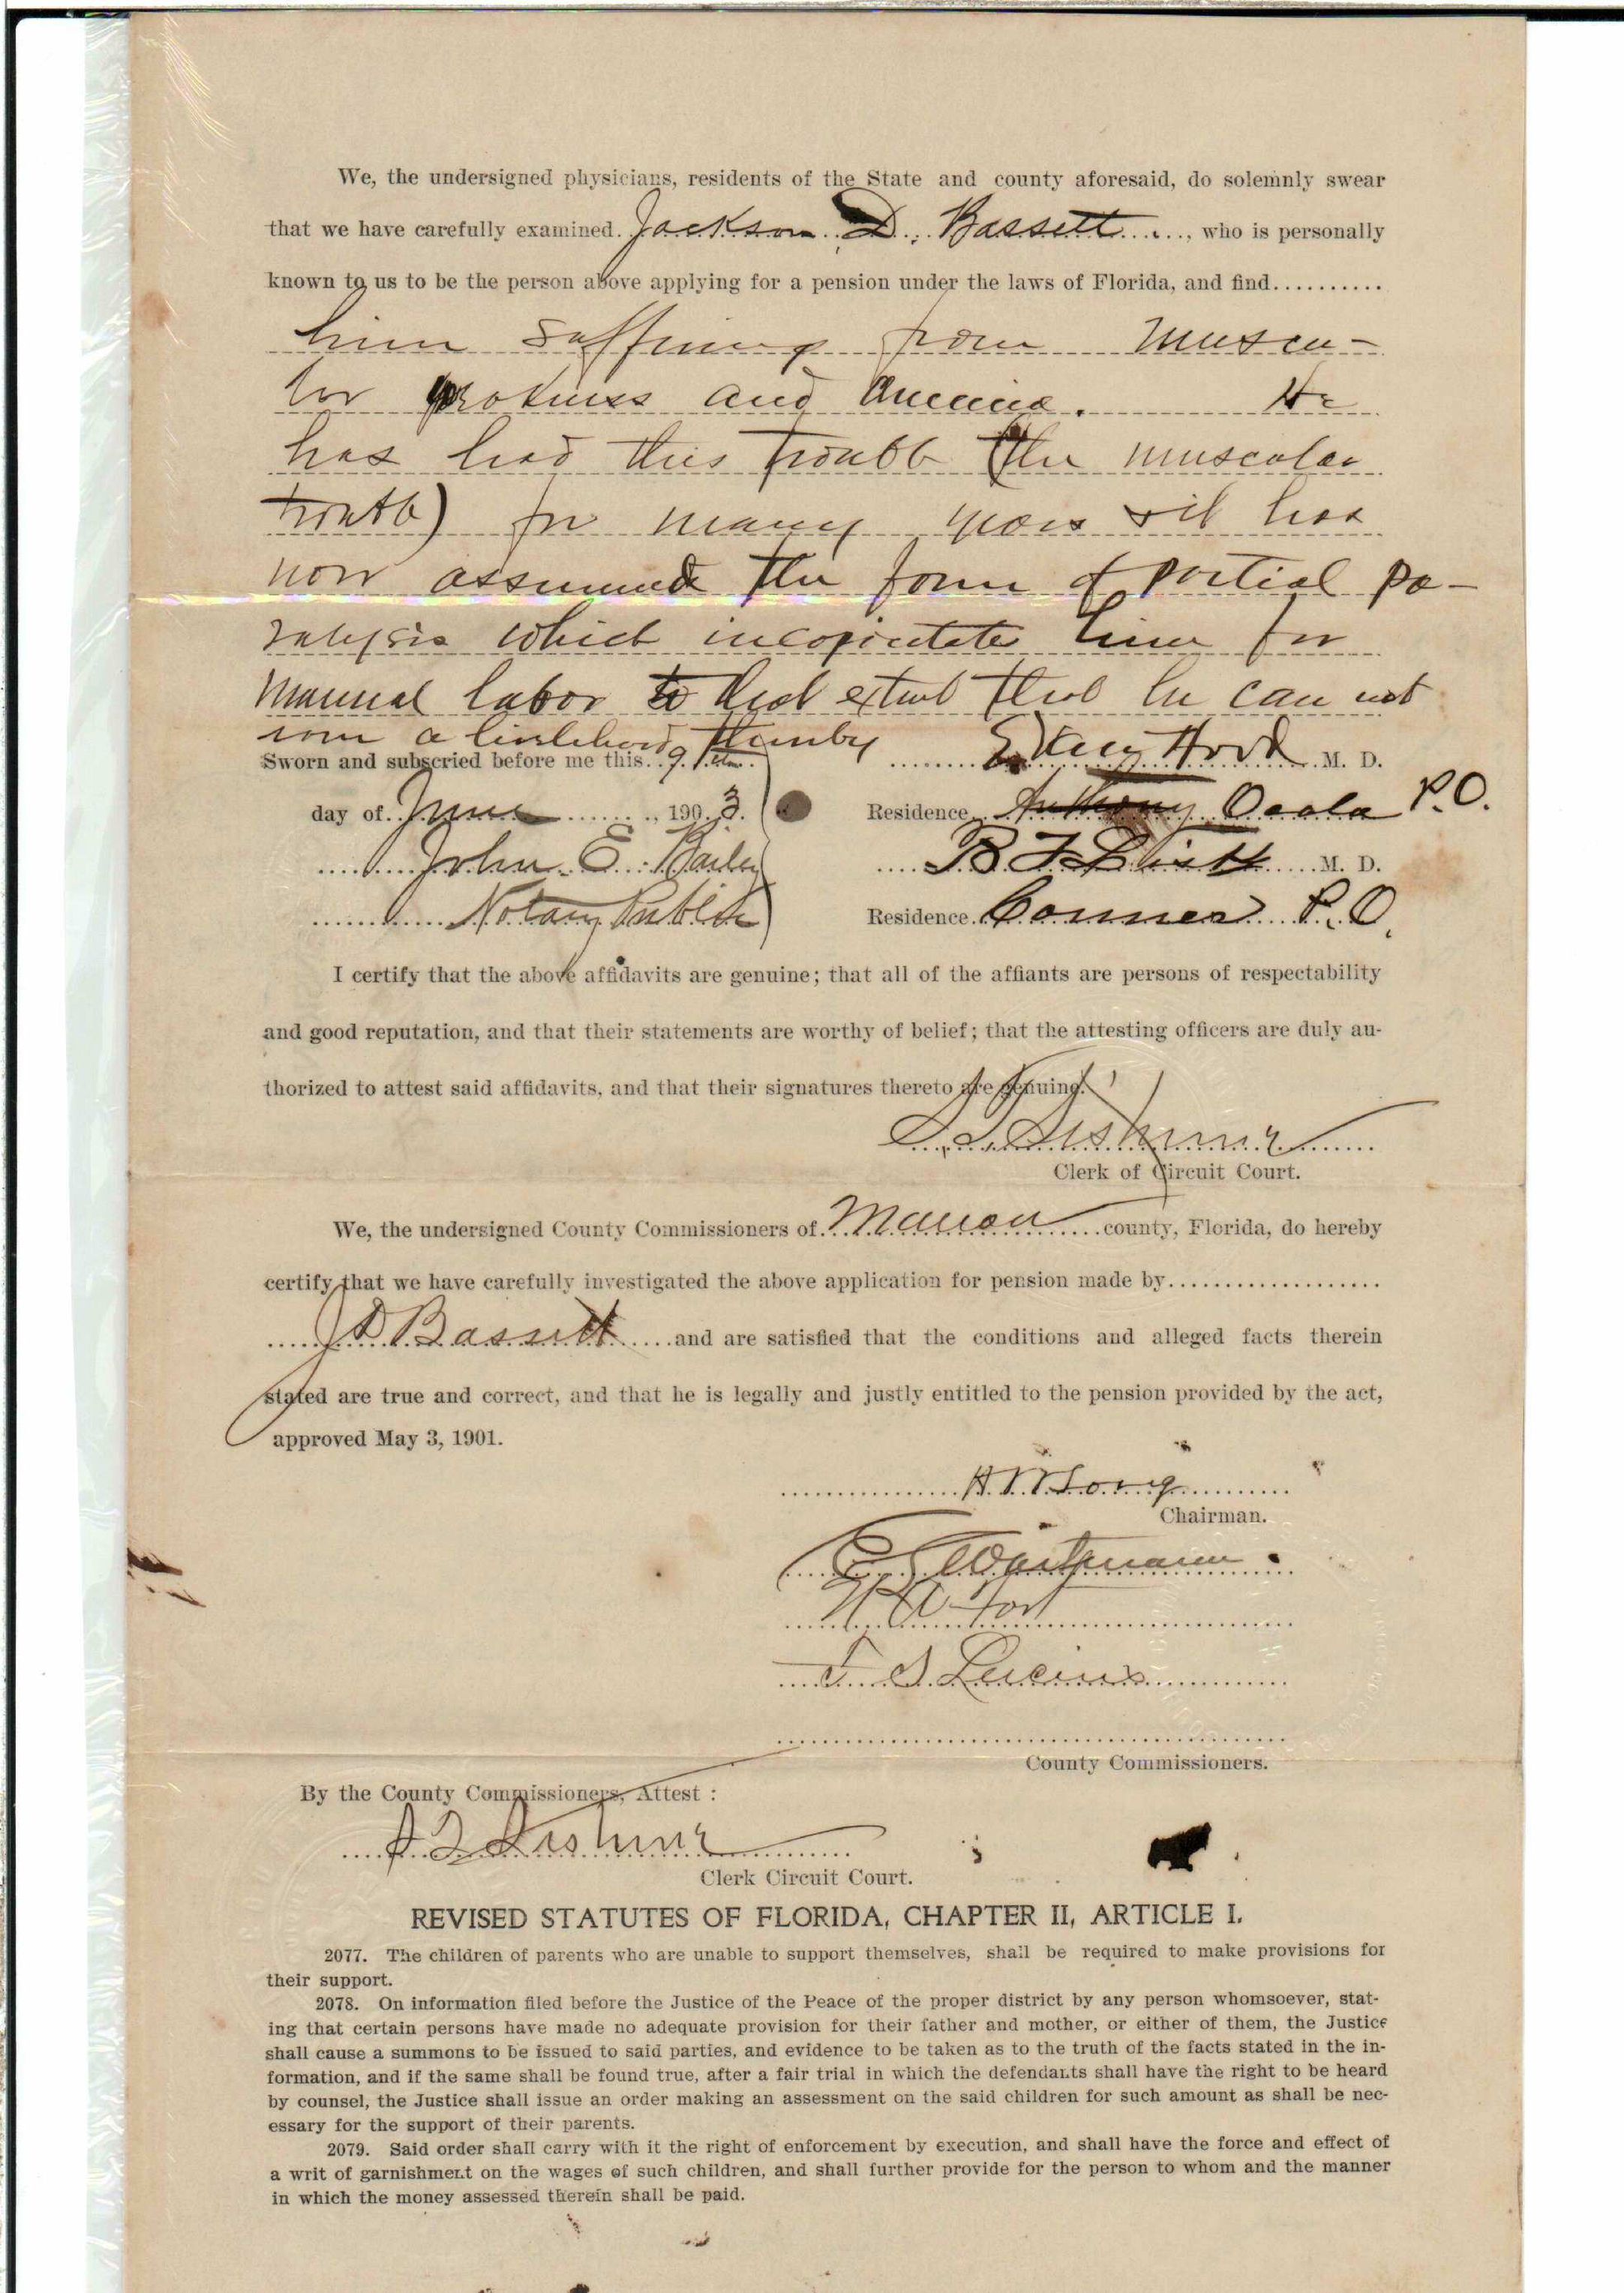 We, the undersigned physicians, residents of the State and county aforesaid, do solemnly swear
that we have carefully examined. Jackson D. Bassett ....., who is personally
known to us to be the person above applying for a pension under the laws of Florida, and find..........
him suffering from muscu-
lar weakness and anemia. He
has had this trouble (the muscular
trouble) for many years & it has
now assumed the form of partial pa-
ralysis which incapacitates him for
manual labor to that extent that he can not
earn a livelihood thereby
Sworn and subscried before me this. 9th Hood M. D.
day of June, 1903. Residence Anthony Ocala P.O.
John E. Bailey B F M. D.
Notary Public Residence. Conner P.O.
I certify that the above affidavits are genuine; that all of the affiants are persons of respectability
and good reputation, and that their statements are worthy of belief; that the attesting officers are duly au-
thorized to attest said affidavits, and that their signatures thereto are genuine.
S. T. Sistrunk
Clerk of Circuit Court.
We, the undersigned County Commissioners of Marion county, Florida, do hereby
certify that we have carefully investigated the above application for pension made by....................
J D Bassett and are satisfied that the conditions and alleged facts therein
stated are true and correct, and that he is legally and justly entitled to the pension provided by the act,
approved May 3, 1901.
H. W. Long
Chairman.
Wartmann
Fort
Lucius
County Commissioners.
By the County Commissioners, Attest :
S T Sistrunk
Clerk Circuit Court.
REVISED STATUTES OF FLORIDA, CHAPTER II, ARTICLE I.
2077. The children of parents who are unable to support themselves, shall be required to make provisions for
their support.
2078. On information filed before the Justice of the Peace of the proper district by any person whomsoever, stat-
ing that certain persons have made no adequate provision for their father and mother, or either of them, the Justice
shall cause a summons to be issued to said parties, and evidence to be taken as to the truth of the facts stated in the in-
formation, and if the same shall be found true, after a fair trial in which the defendants shall have the right to be heard
by counsel, the Justice shall issue an order making an assessment on the said children for such amount as shall be nec-
essary for the support of their parents.
2079. Said order shall carry with it the right of enforcement by execution, and shall have the force and effect of
a writ of garnishment on the wages of such children, and shall further provide for the person to whom and the manner
in which the money assessed therein shall be paid.